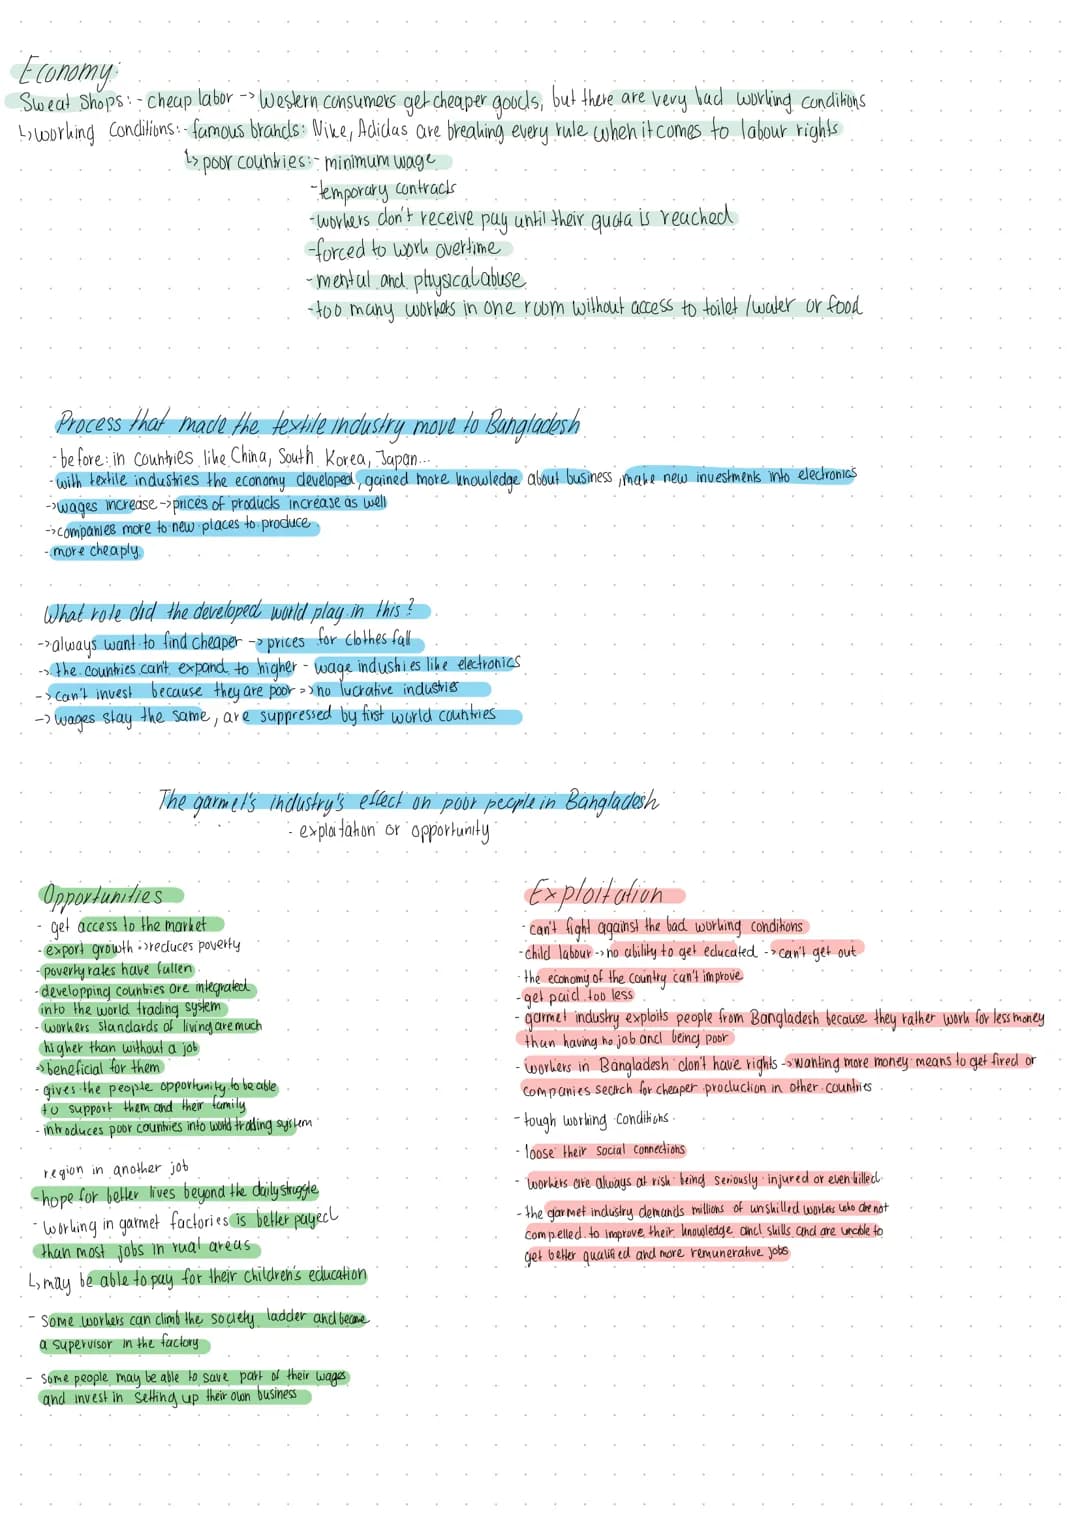 Economy:
Sweat Shops: - cheap labor -> Western consumers get cheaper goods, but there are very bad working conditions
↳ working conditions: - famous brands: Nike, Adidas are breaking every rule when it comes to labour rights
↳ poor countries: - minimum wage
- temporary contracts
- workers don't receive pay until their quota is reached
- forced to work overtime
- mental and physical abuse
- too many workers in one room without access to toilet /water or food
Process that made the textile industry move to Bangladesh
- before: in countries like China, South Korea, Japan...
- with textile industries the economy developed, gained more knowledge about business, make new investments into electronics
-> wages increase -> prices of products increase as well
-> companies more to new places to produce
- more cheaply
What role did the developed world play in this?
-> always want to find cheaper -> prices for clothes fall
-> the countries can't expand to higher - wage industries like electronics
-> can't invest because they are poor => no lucrative industries
-> wages stay the same, are suppressed by first world countries
The garmet's industry's effect on poor people in Bangladesh
- exploitation or opportunity
Opportunities
- get access to the market
- export growth => reduces poverty
- poverty rates have fallen
- developping countries are integrated
into the world trading system
- workers standards of living are much
higher than without a job
=> beneficial for them
- gives the people opportunity to be able
to support them and their family
- introduces poor countries into world trading system
region in another job
- hope for better lives beyond the daily struggle
- working in garmet factories is better payed
than most jobs in rual areas
↳ may be able to pay for their children's education
- some workers can climb the society ladder and become
a supervisor in the factory
- some people may be able to save part of their wages
and invest in setting up their own business
Exploitation
- can't fight against the bad working conditions
- child labour -> no ability to get educated -> can't get out
- the economy of the country can't improve
- get paid too less
- garmet industry exploits people from Bangladesh because they rather work for less money
than having no job and being poor
- workers in Bangladesh don't have rights -> wanting more money means to get fired or
companies search for cheaper production in other countries
- tough working conditions
- loose their social connections
- workers are always at risk being seriously injured or even killed
- the garmet industry demands millions of unskilled workers who are not
compelled to improve their knowledge and skills and are unable to
get better qualified and more remunerative jobs